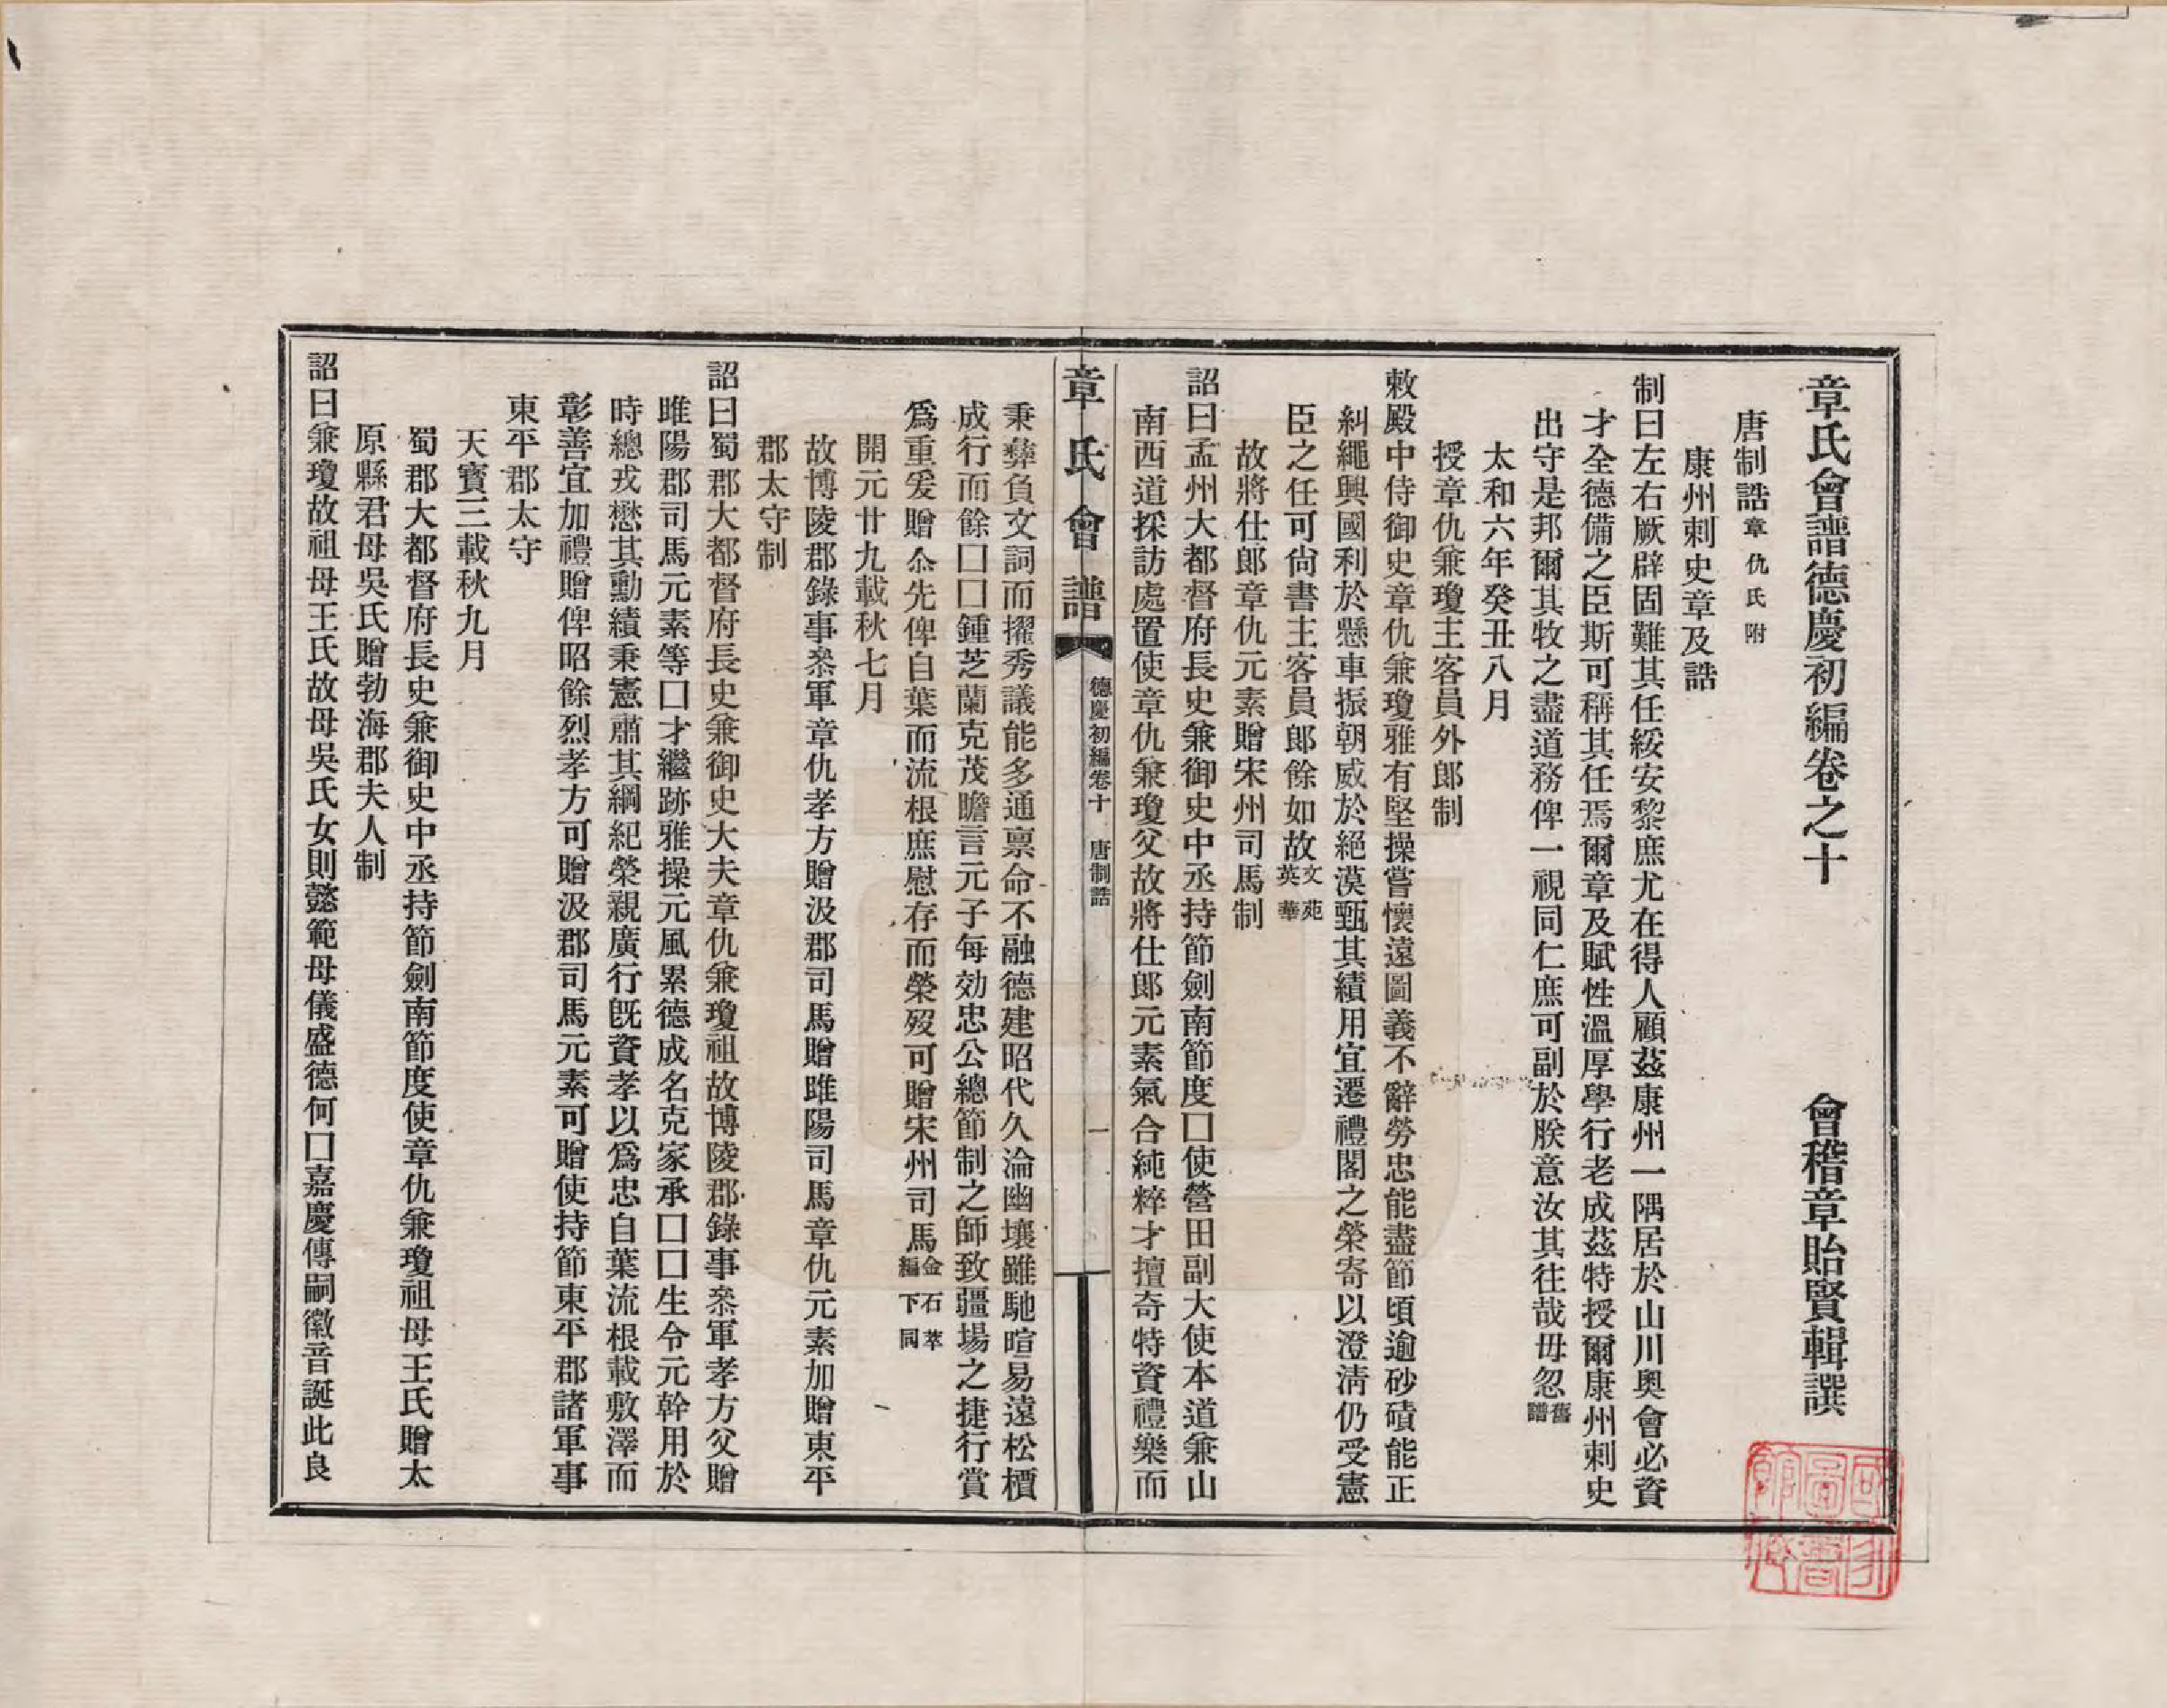 章氏會譜德慶初編卷之十　會稽章貽賢輯譔
唐制誥章仇氏附
康州刺史章及誥
制曰左右厥辟固難其任綏安黎庶尤在得人顧茲康州一隅居於山川奧會必資
才全德備之臣斯可稱其任焉爾章及賦性溫厚學行老成茲特授爾康州刺史
出守是邦爾其牧之盡道務俾一視同仁庶可副於朕意汝其往哉毋忽舊譜
太和六年癸丑八月
授章仇兼瓊主客員外郎制
敕殿中侍御史章仇兼瓊雅有堅操嘗懷遠圖義不辭勞忠能盡節頃逾砂磧能正
糾繩興國利於懸車振朝威於絕漠甄其績用宜遷禮閣之榮寄以澄淸仍受憲
臣之任可尙書主客員郎餘如故文苑英華
故將仕郎章仇元素贈宋州司馬制
詔曰孟州大都督府長史兼御史中丞持節劍南節度囗使營田副大使本道兼山
南西道採訪處置使章仇兼瓊父故將仕郎元素氣合純粹才擅奇特資禮樂而
章氏會譜　德慶初編卷十　唐制誥　一
秉彝負文詞而擢秀議能多通禀命不融德建昭代久淪幽壤雖馳暄易遠松檟
成行而餘囗囗鍾芝蘭克茂瞻言元子每効忠公總節制之師致疆場之捷行賞
爲重爰贈尒先俾自葉而流根庶慰存而榮歿可贈宋州司馬金石萃編下同
開元廿九載秋七月
故博陵郡錄事叅軍章仇孝方贈汲郡司馬贈睢陽司馬章仇元素加贈東平
郡太守制
詔曰蜀郡大都督府長史兼御史大夫章仇兼瓊祖故博陵郡錄事叅軍孝方父贈
睢陽郡司馬元素等囗才繼跡雅操元風累德成名克家承囗囗生令元幹用於
時總戎懋其勳績秉憲肅其綱紀榮親廣行旣資孝以爲忠自葉流根載敷澤而
彰善宜加禮贈俾昭餘烈孝方可贈汲郡司馬元素可贈使持節東平郡諸軍事
東平郡太守
天寶三載秋九月
蜀郡大都督府長史兼御史中丞持節劍南節度使章仇兼瓊祖母王氏贈太
原縣君母吳氏贈勃海郡夫人制
詔曰兼瓊故祖母王氏故母吳氏女則懿範母儀盛德何囗嘉慶傳嗣徽音誕此良